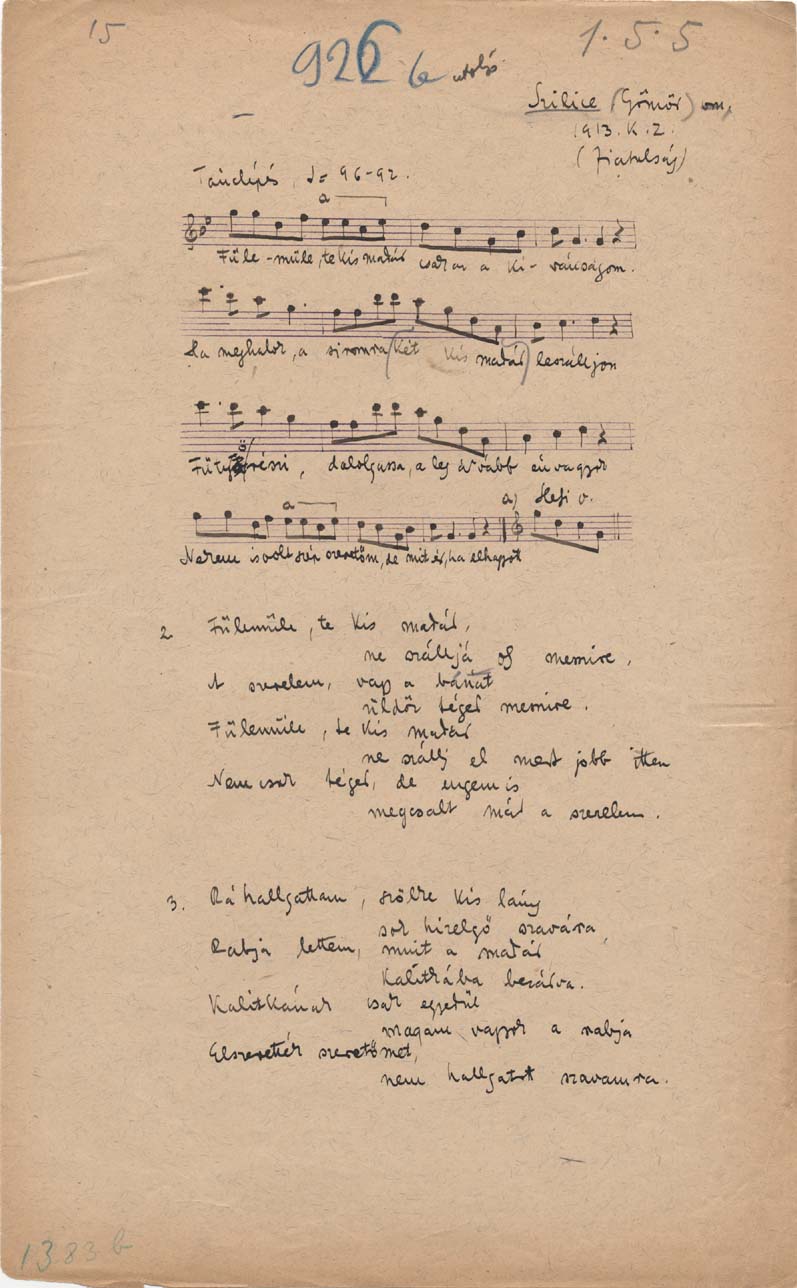 15
926 b utolsó
1.5.5
Szilice (Gömör)
1913. K.Z.
(Fiatalság)
Tánclépés, ♩= 96-92.
a
Füle-müle, te kis madár csak az a ki-vánságom.
Ha meghalok, a siromra (két kis madár) leszálljon
Fütyörészi, dalolgassa, a leg árvább én vagyok
a) Hefi v.
a
Nekem is volt szép szeretőm, de mit ér, ha elhagyot
2 Fülemüle, te kis madár,
ne szálljá of messzire,
A szerelem, vagy a bánat
üldöz téged messzire.
Fülemüle, te kis madár
ne szállj el mert jobb itten
Nemcsak téged, de engem is
megcsalt már a szerelem.
3. Rá hallgattam, szőke kis lány
sok hizelgő szavára,
Rabja lettem, mint a madár
Kalitkába bezárva.
Kalitkának csak egyedül
magam vagyok a rabja
Elszerették szeretőmet,
nem hallgatot szavamra.
1383 b